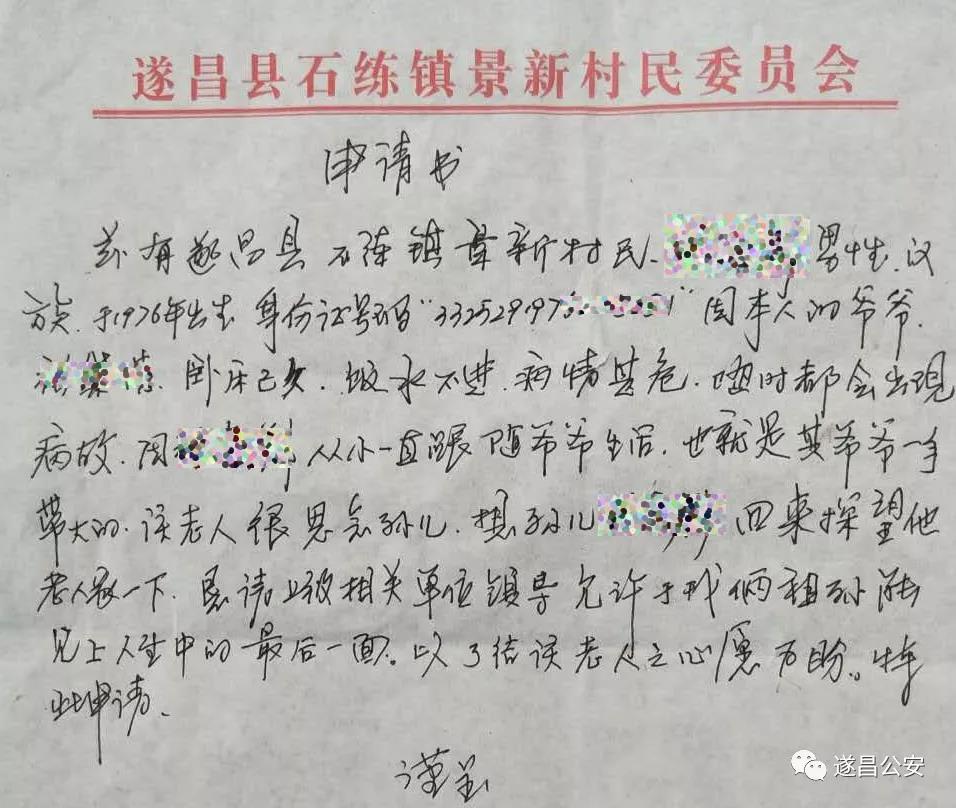 遂昌县石练镇景新村民委员会
申请书
兹有遂昌县石练镇景新村民 男性.汉
族.于1976年出生 身份证号码"33252919 " 因本人的爷爷.
卧床已久.饭水不进.病情甚危.随时都会出现
病故.因 从小一直跟随爷爷生活.也就是其爷爷一手
带大的.该老人很思念孙儿.想孙儿 回来探望他
老人家一下.恳请上级相关单位领导允许于我俩祖孙
见上人生中的最后一面。以了结该老人之心愿为盼。特
此申请.
谨呈
遂昌公安